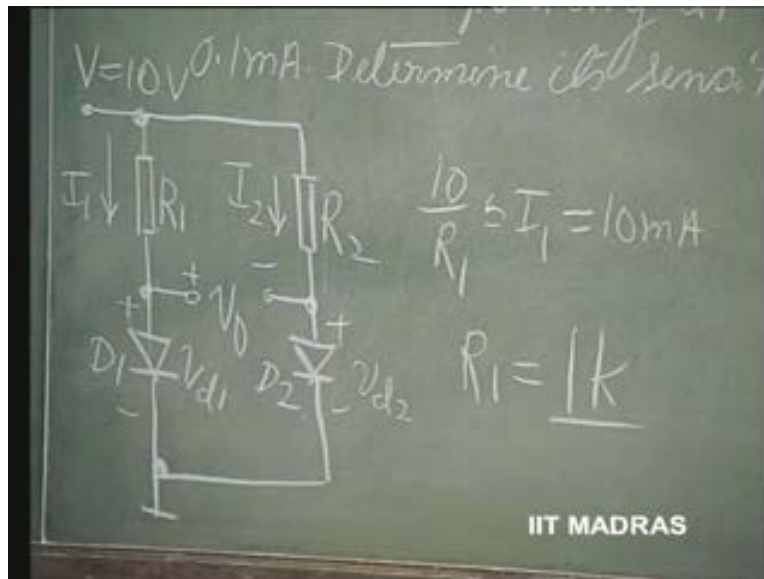 V=10V 0.1mA. Determine its
I₁ ↓ R₁ I₂ ↓ R₂
10/R₁ ≃ I₁ = 10mA
+ V₀ -
+ +
D₁ Vd₁ D₂ Vd₂
- -
R₁ = 1k
IIT MADRAS